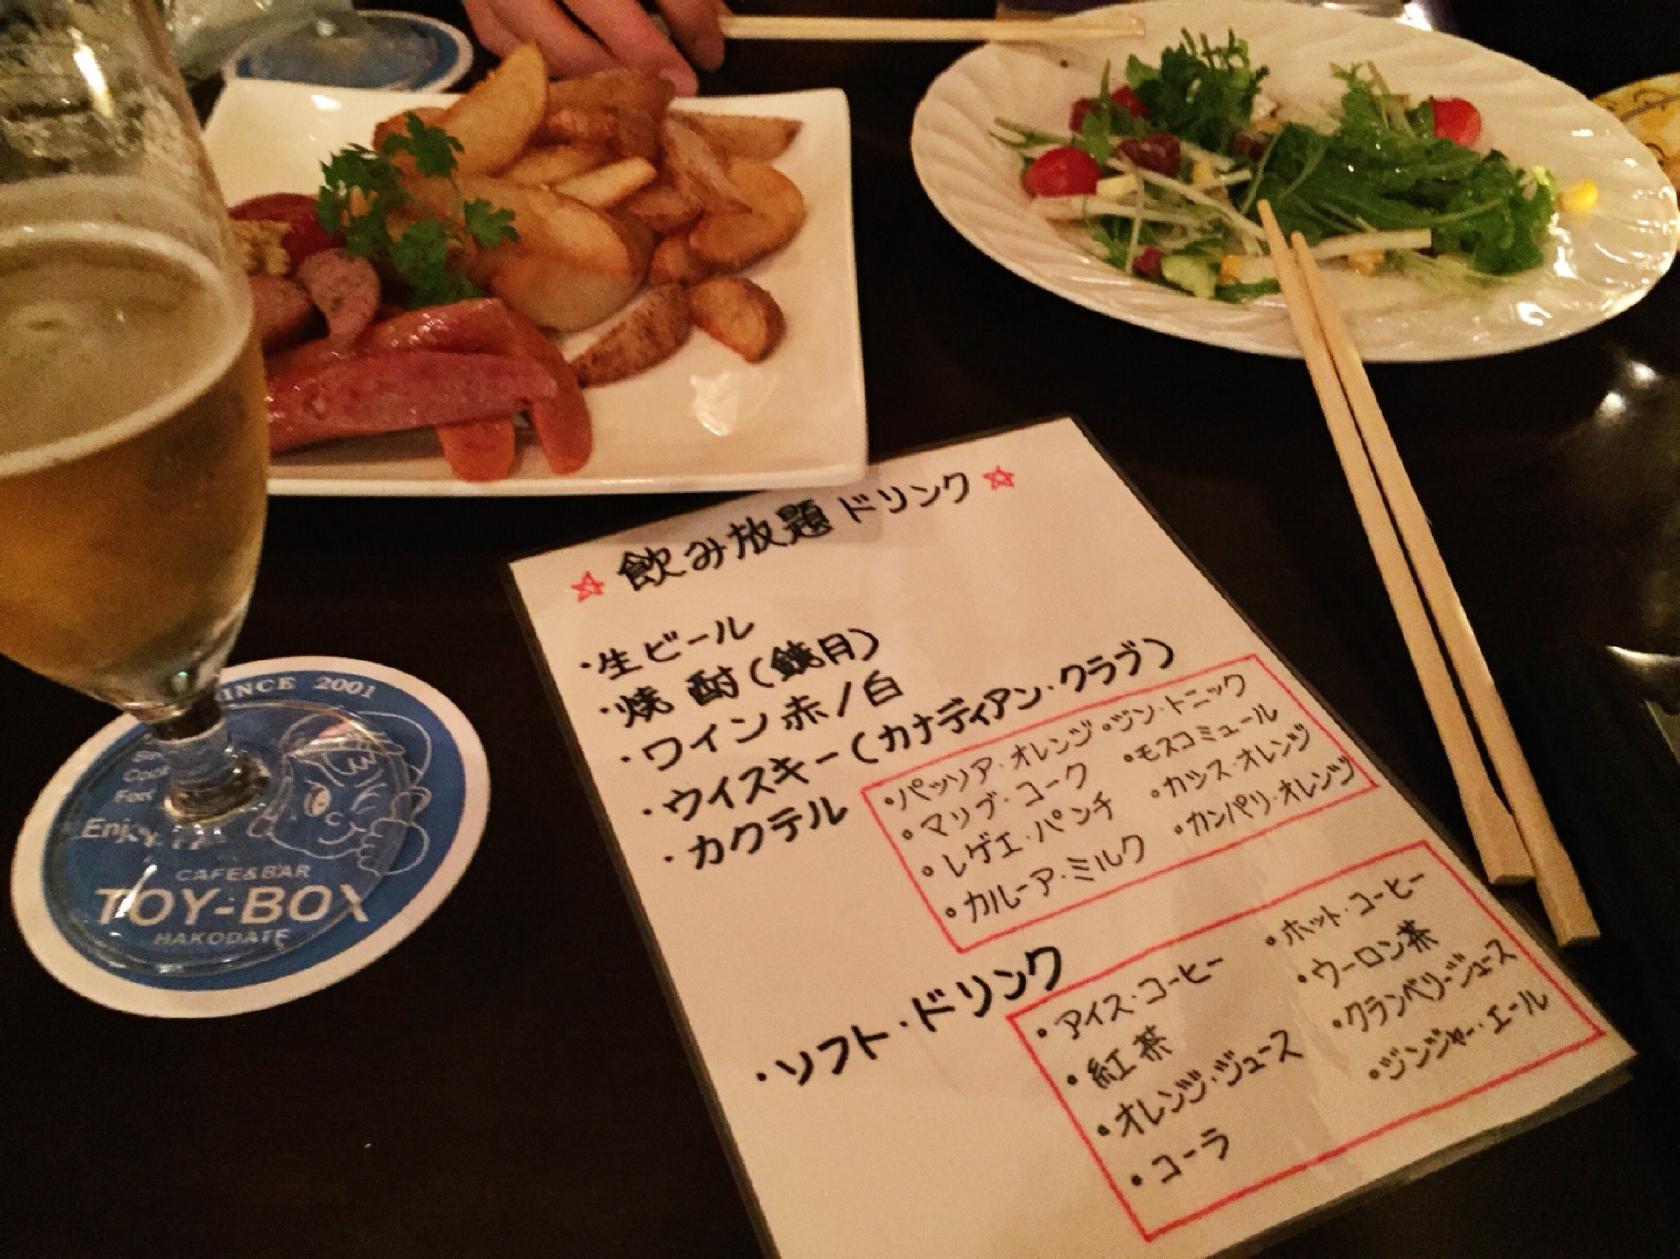 ☆ 飲み放題 ドリンク ☆
・生ビール
・焼酎(鏡月)
・ワイン 赤/白
・ウイスキー(カナディアン・クラブ)
・カクテル
・パッソア・オレンジ ・ジン・トニック
・マリブ・コーク ・モスコミュール
・レゲエ・パンチ ・カシス・オレンジ
・カルーア・ミルク ・カンパリ・オレンジ
・ソフト・ドリンク
・アイス・コーヒー ・ホット・コーヒー
・紅茶 ・ウーロン茶
・オレンジ・ジュース ・クランベリージュース
・コーラ ・ジンジャー・エール
SINCE 2001
Enjoy
CAFE&BAR
TOY-BOX
HAKODATE